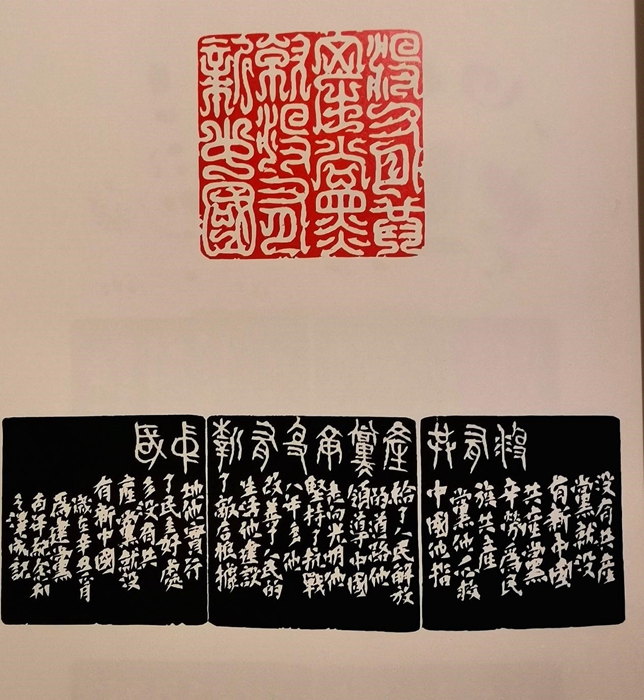 沒有共
產黨
就沒有
新中國
沒有共產黨就沒有新中國
没有共產
黨就没
有新中國
共產黨
辛勞為民
族共產
黨他一心救
中國他指
給了人民解放
的道路他
領導中國
走向光明他
堅持了抗戰
八年多他
改善了人民的
生活他建設
了敵后根據
地他實行
了民主好處
多没有共
產黨就没
有新中國
歲在辛丑
為建黨
百年